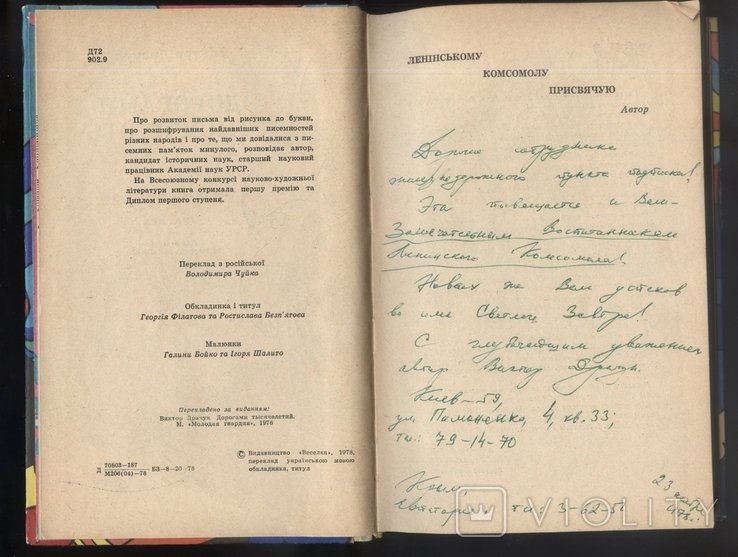 Д72
902.9
Про розвиток письма від рисунка до букви,
про розшифрування найдавніших писемностей
різних народів і про те, що ми довідалися з пи-
семних пам'яток минулого, розповідає автор,
кандидат історичних наук, старший науковий
працівник Академії наук УРСР.
На Всесоюзному конкурсі науково-художньої
літератури книга отримала першу премію та
Диплом першого ступеня.
Переклад з російської
Володимира Чуйка
Обкладинка і титул
Георгія Філатова та Ростислава Безп'ятова
Малюнки
Галини Бойко та Ігоря Шалито
Перекладено за виданням:
Виктор Драчук. Дорогами тысячелетий.
М. «Молодая гвардия», 1976
Д 70803—187
М206(04)—78 БЗ—8—20—78
© Видавництво «Веселка», 1978,
переклад українською мовою
обкладинка, титул
ЛЕНІНСЬКОМУ
КОМСОМОЛУ
ПРИСВЯЧУЮ
Автор
Дорогие сотрудники
пункта
Эта посвящается и Вам–
Замечательным Воспитанникам
Ленинского Комсомола!
Новых же Вам успехов
во имя Светлого Завтра!
С глубочайшим уважением
автор Виктор Драчук.
Киев–59,
ул. Пимоненко, 4, кв. 33;
тел: 79-14-70
Крым,
Евпатория, тел: 3-62-5
23
1978г.
VIOLITY